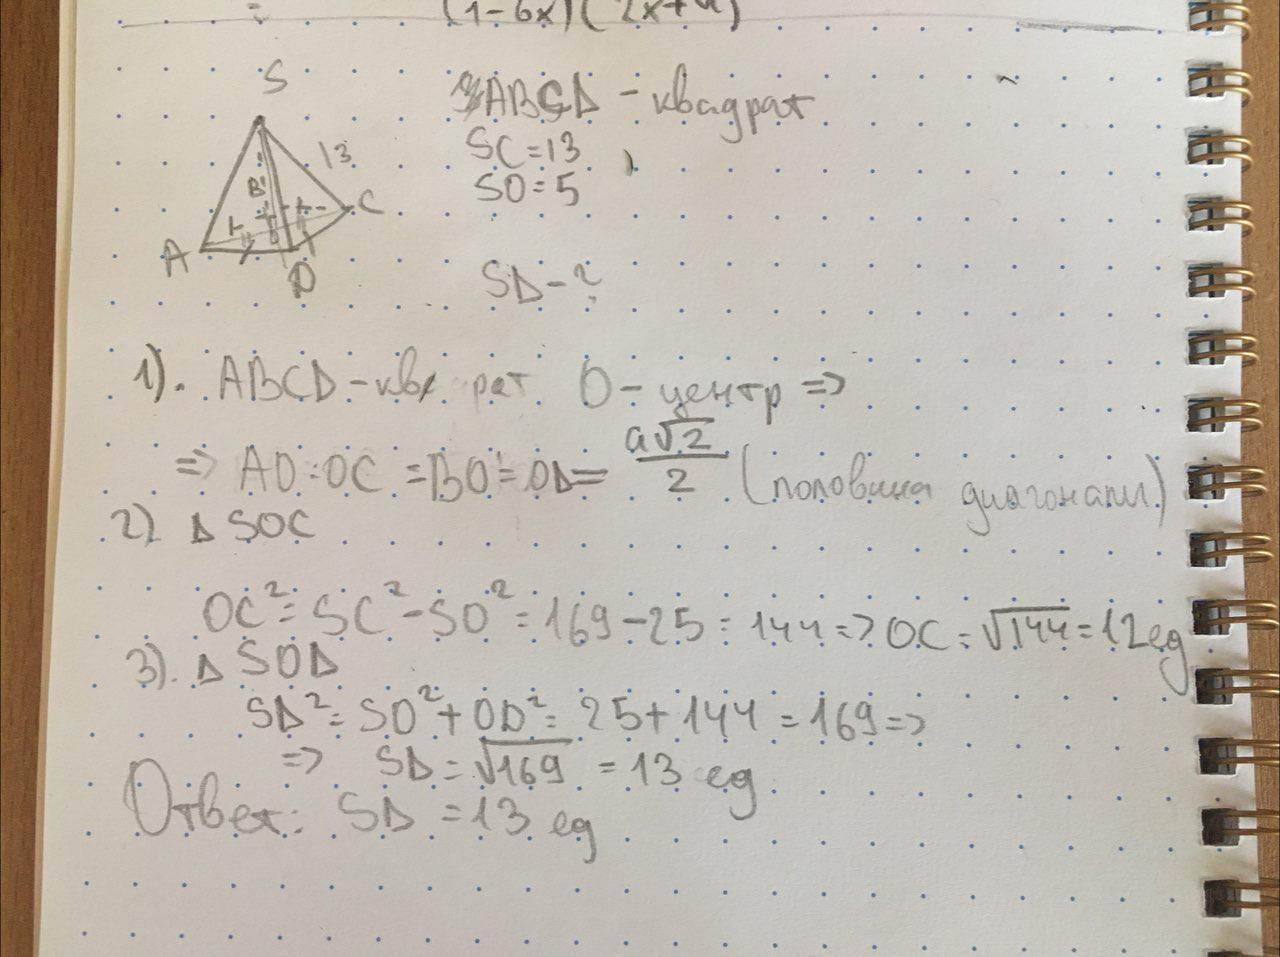 (1-6x)(2x+4)
S
ABCD - квадрат
13
SC=13
SO=5
B
C
A
D
SD-?
1). ABCD-кв рат O- центр =>
=> AO=OC=BO=OD= a√2/2 (половина диагонали)
2) Δ SOC
OC²=SC²-SO²=169-25=144=>OC=√144=12ед
3). Δ SOD
SD²=SO²+OD²=25+144=169=>
=> SD=√169=13 ед
Ответ: SD=13 ед